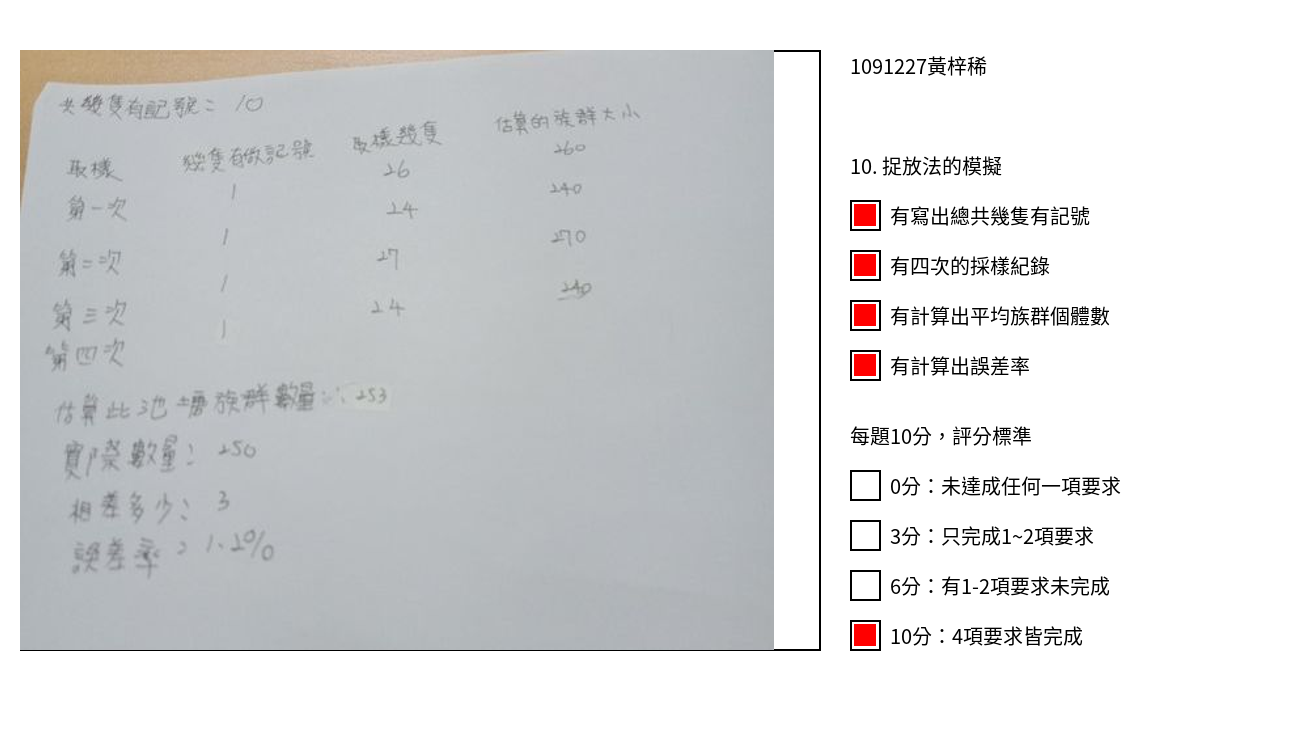 共幾隻有記號：10
取樣 幾隻有做記號 取樣幾隻 估算的族群大小
第一次 1 26 260
第二次 1 24 240
第三次 1 27 270
第四次 1 24 240
估算此池塘族群數量：253
實際數量：250
相差多少：3
誤差率：1.2%
1091227黃梓稀
10. 捉放法的模擬
有寫出總共幾隻有記號
有四次的採樣紀錄
有計算出平均族群個體數
有計算出誤差率
每題10分，評分標準
0分：未達成任何一項要求
3分：只完成1~2項要求
6分：有1-2項要求未完成
10分：4項要求皆完成